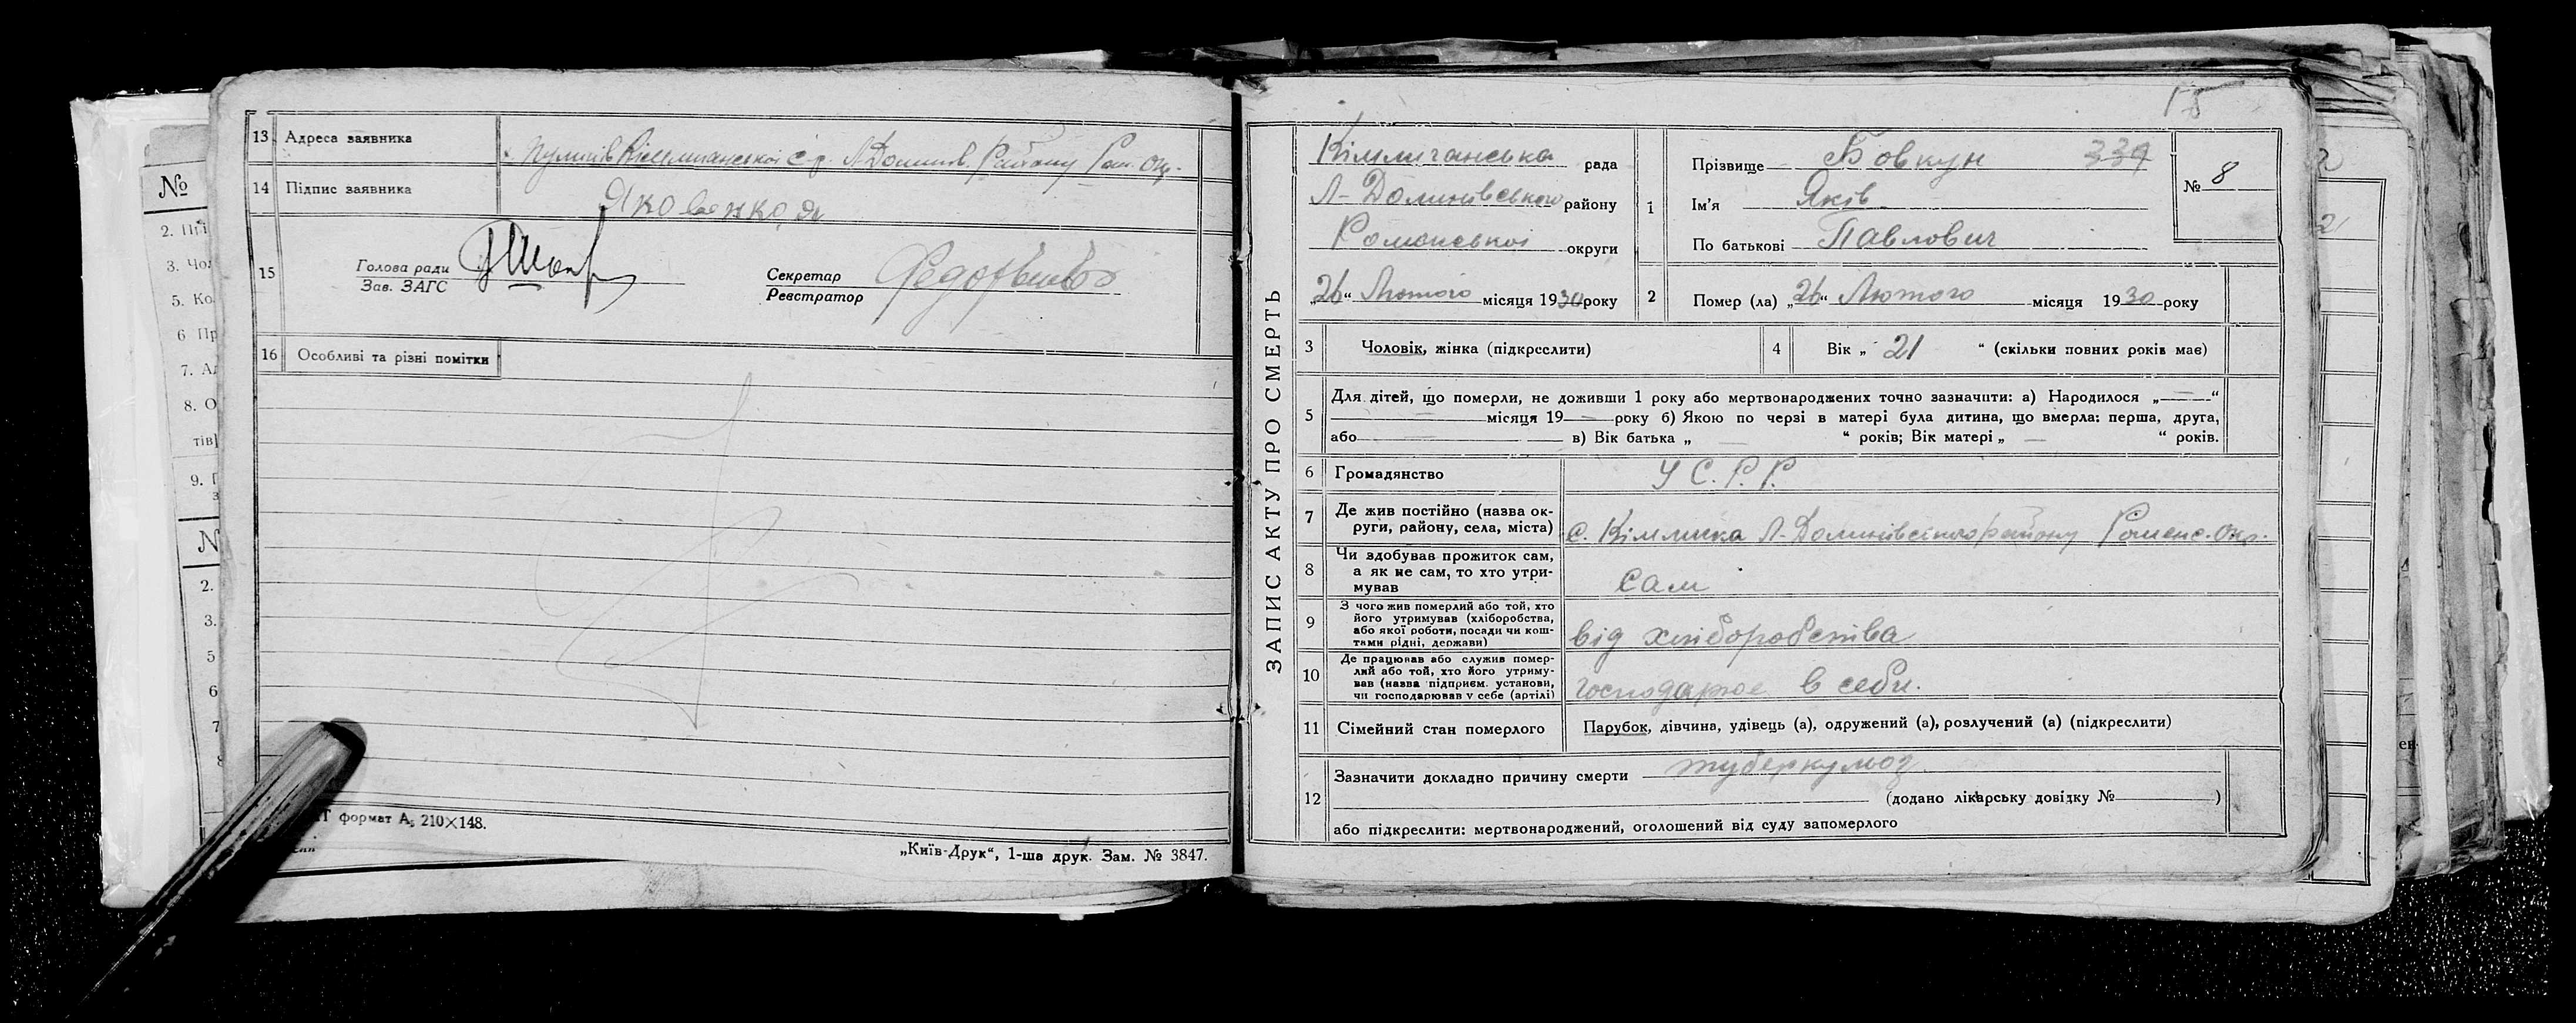 13 Адреса заявника
14 Підпис заявника Яковенко
15 Голова ради
Зав. ЗАГС
Секретар
Реєстратор
16 Особливі та різні помітки
формат А5 210×148.
„Київ-Друк“, 1-ша друк. Зам. № 3847.
15
ЗАПИС АКТУ ПРО СМЕРТЬ
Кімличанська рада
Л-Долинівського району
Роменської округи
„26“ Лютого місяця 1930 року
1 Прізвище Бовкун 339
Ім'я Яків
По батькові Павлович
№ 8
2 Помер (ла) „26“ Лютого місяця 1930 року
3 Чоловік, жінка (підкреслити)
4 Вік „ 21 “ (скільки повних років має)
5 Для дітей, що померли, не доживши 1 року або мертвонароджених точно зазначити: а) Народилося „—“
місяця 19— року б) Якою по черзі в матері була дитина, що вмерла: перша, друга,
або — в) Вік батька „ — “ років; Вік матері „ — “ років.
6 Громадянство У С.Р.Р.
7 Де жив постійно (назва ок-
руги, району, села, міста) с. Кімличка Л-Долинівського району Роменс. Окр.
8 Чи здобував прожиток сам,
а як не сам, то хто утри-
мував сам
9 З чого жив померлий або той, хто
його утримував (хліборобства,
або якої роботи, посади чи кош-
тами рідні, держави) від хліборобства
10 Де працював або служив помер-
лий або той, хто його утриму-
вав (назва підприєм. установи,
чи господарював у себе (артілі) господарює в себе.
11 Сімейний стан померлого Парубок, дівчина, удівець (а), одружений (а), розлучений (а) (підкреслити)
12 Зазначити докладно причину смерти туберкульоз
(додано лікарську довідку № )
або підкреслити: мертвонароджений, оголошений від суду запомерлого